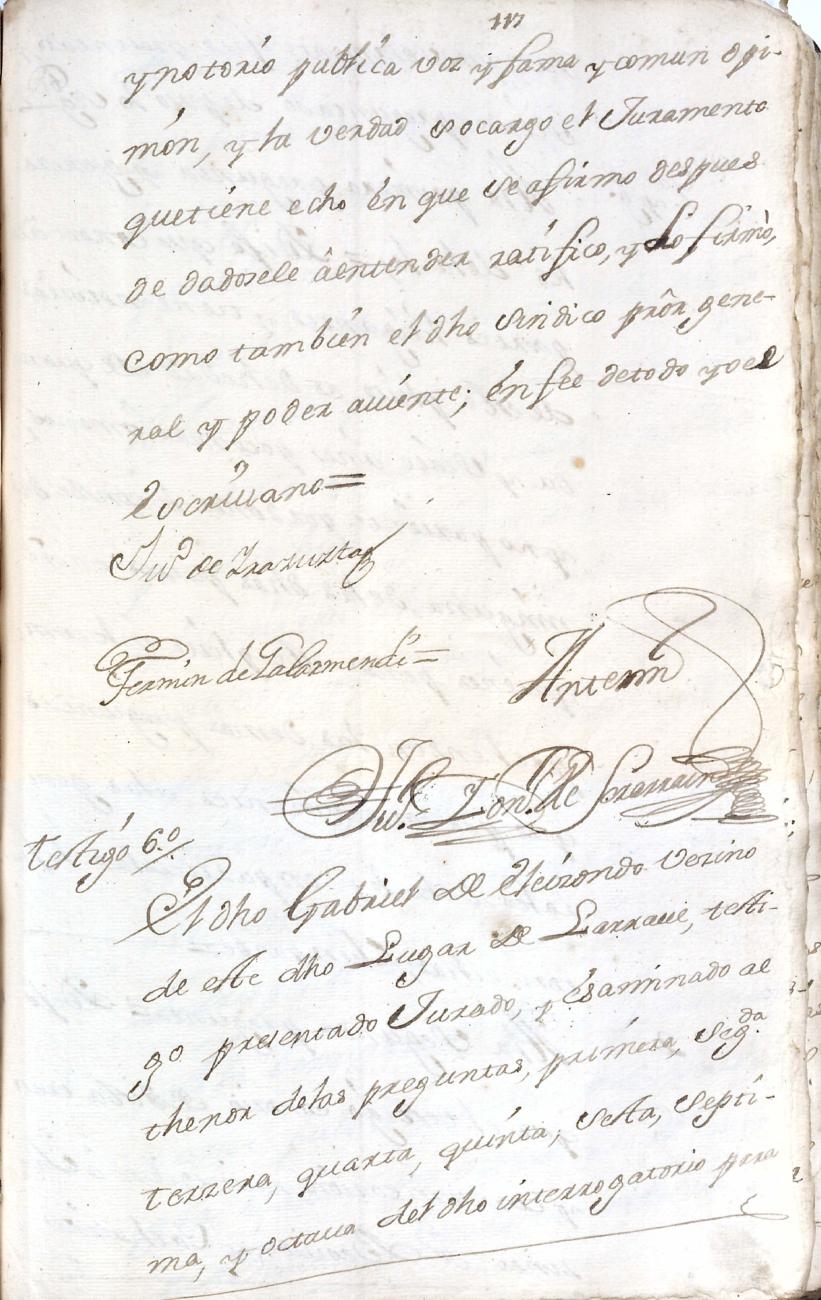 117
y notorio publica voz y fama y comun opi-
nion, y la verdad socargo el Juramento
que tiene echo en que se afirmo despues
de dadosele â entender ratifico, y lo firmò,
como tambien el dho sindico prôr gene-
ral y poder auiente; en fee de todo yo el
Escriuano =
Ju.º de
Fermin de =
Antemi
Ju.º de
testigo 6.º
El dho Gabriel de Eleizondo vezino
de este dho Lugar de Larraue, testi-
go presentado Jurado, y esaminado al
thenor de las preguntas, primera, seg.da
terzera, quarta, quinta, sesta, septi-
ma, y octaua del dho interrogatorio